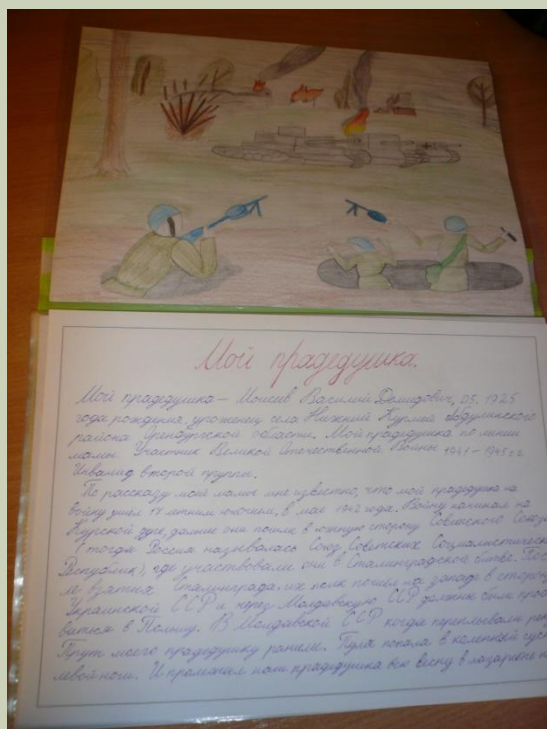 Мой прадедушка.
Мой прадедушка – Моисеев Василий Демидович, 05. 1925
года рождения, уроженец села Нижний Курмей Абдулинского
района Оренбургской области. Мой прадедушка по линии
мамы. Участник Великой Отечественной Войны 1941 – 1945 г.г.
Инвалид второй группы.
По рассказу моей мамы мне известно, что мой прадедушка на
войну ушел 17 летним юношей, в мае 1942 года. Войну начинал на
Курской дуге, дальше они пошли в южную сторону Советского Союза
(тогда Россия называлась Союз Советских Социалистических
Республик), где участвовали они в Сталинградской битве. Пос-
ле взятия Сталинграда, их полк пошел на запад в сторону
Украинской ССР и через Молдавскую ССР должны были
виться в Польшу. В Молдавской ССР когда переплывали реку
Прут моего прадедушку ранили. Пуля попала в коленный сустав
левой ноги. И пролежал мой прадедушка всю весну в лазарете